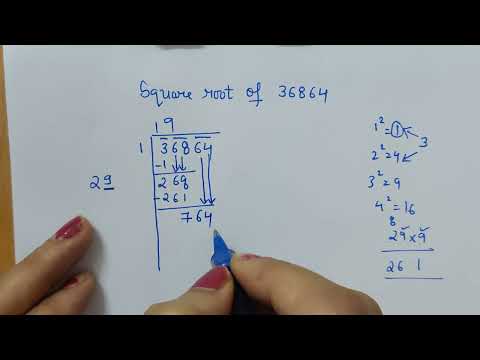 Square root of 36864
19
1 36864
-1
29 268
-261
764
1²=1 3
2²=4
3²=9
4²=16
8
29×9
261